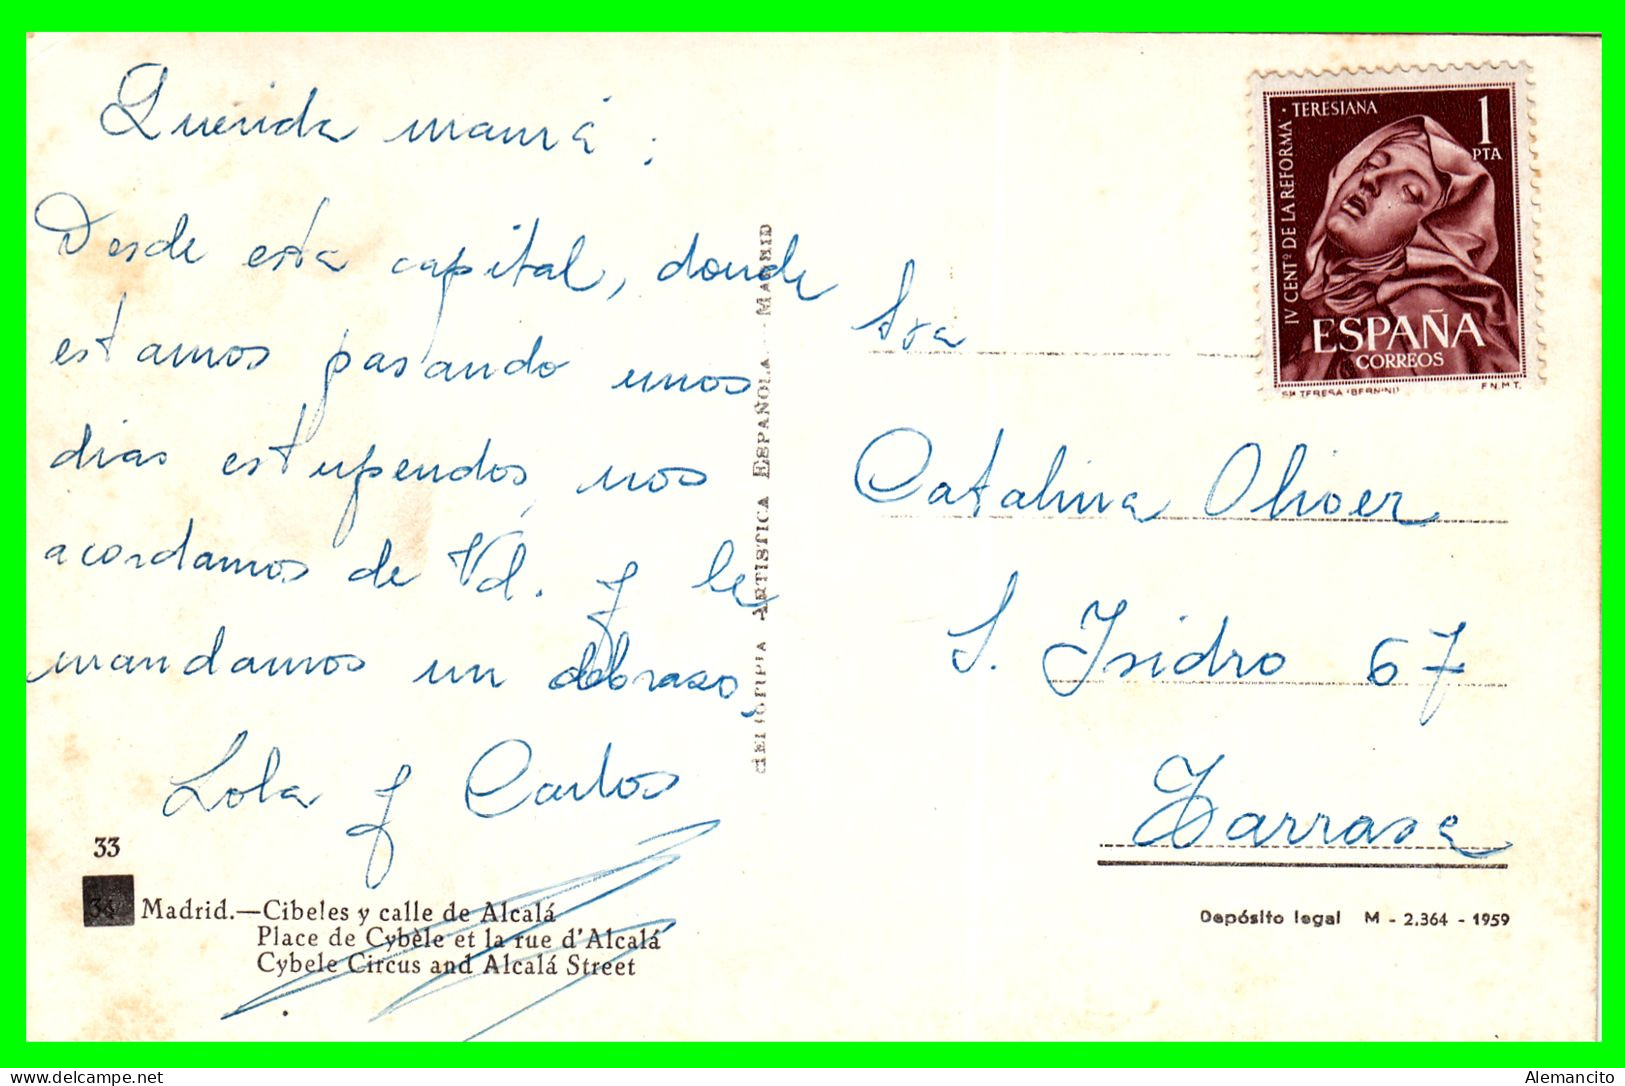 Querida mamá:
Desde esta capital, donde
estamos pasando unos
dias estupendos, nos
acordamos de Vd. y le
mandamos un abraso,
Lola y Carlos
33
34 Madrid.—Cibeles y calle de Alcalá
Place de Cybèle et la rue d'Alcalá
Cybele Circus and Alcalá Street
HELIOTIPIA ARTISTICA ESPAÑOLA - MADRID
IV CENTº DE LA REFORMA · TERESIANA
1
PTA
ESPAÑA
CORREOS
Sta TERESA (BERNINI) F.N.M.T.
Sra
Catalina Oliver
S. Isidro 67
Tarrasa
Depósito legal M - 2.364 - 1959
Alemancito